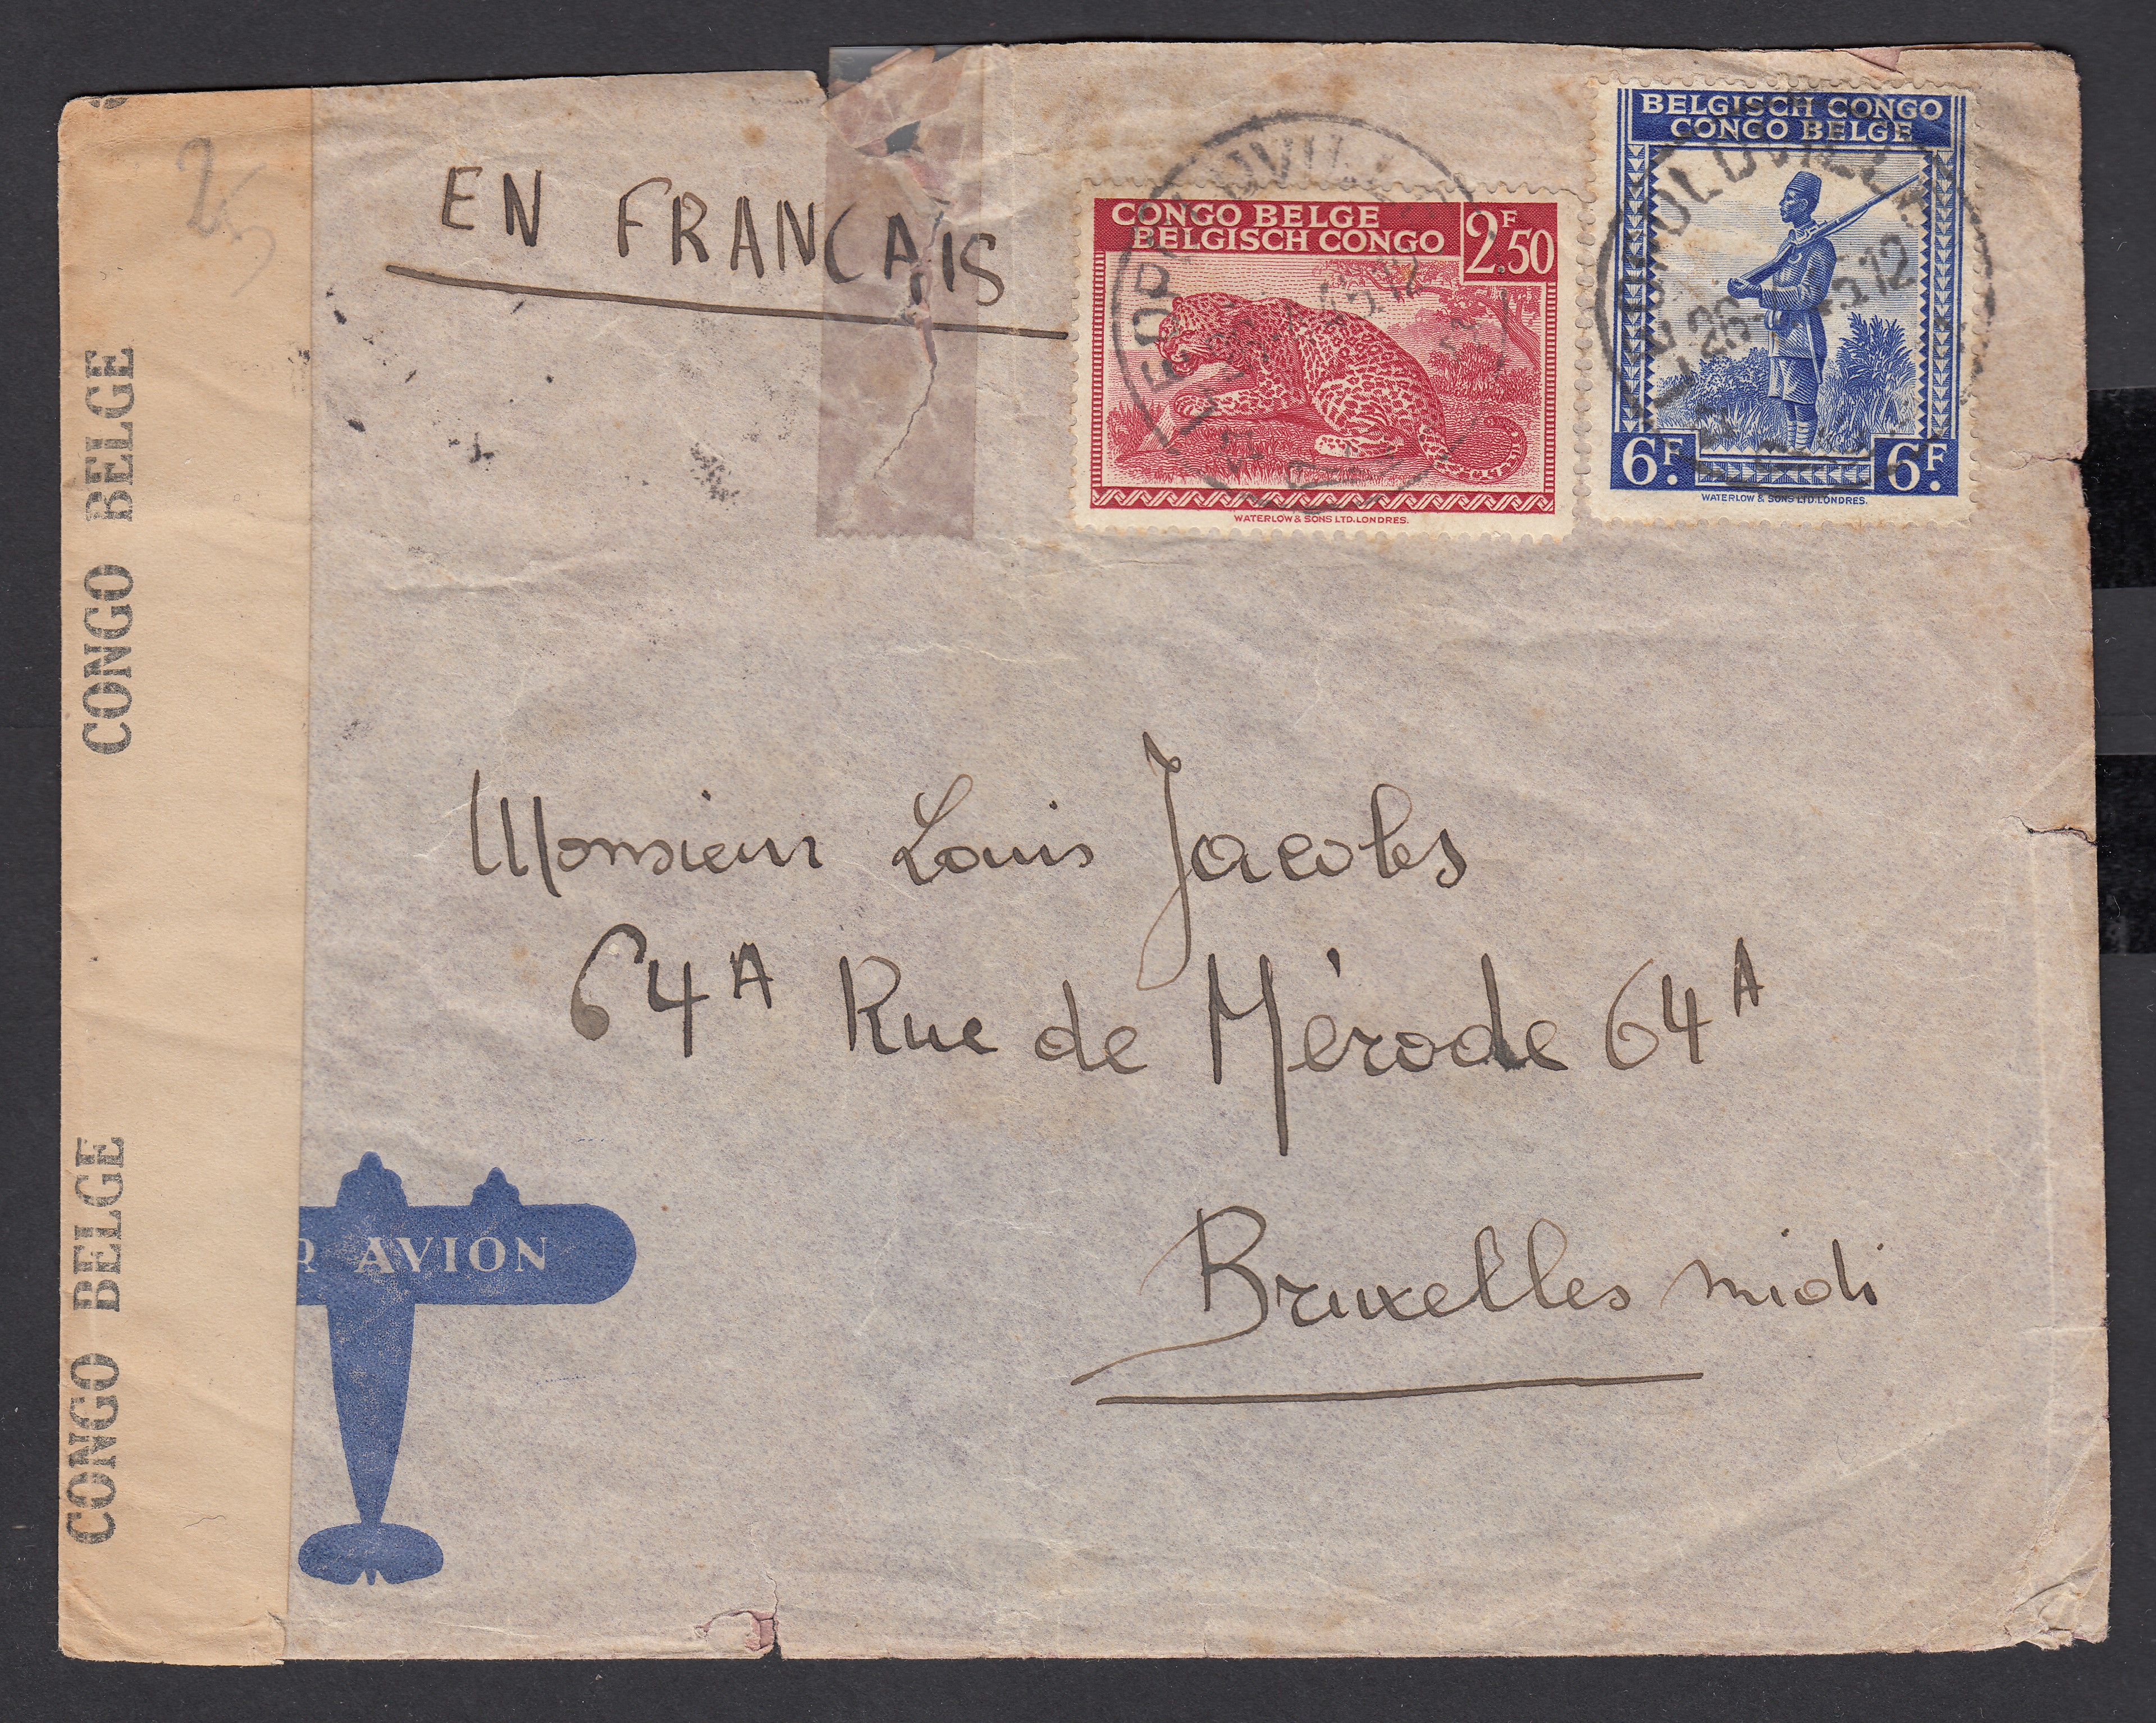 25
EN FRANCAIS
CONGO BELGE
BELGISCH CONGO
2F.50
WATERLOW & SONS LTD. LONDRES.
BELGISCH CONGO
CONGO BELGE
6F.
6F.
WATERLOW & SONS LTD. LONDRES.
LEOPOLDVILLE
LEOPOLDVILLE
CONGO BELGE
CONGO BELGE
Monsieur Louis Jacobs
64A Rue de Mérode 64A
Bruxelles midi
R AVION